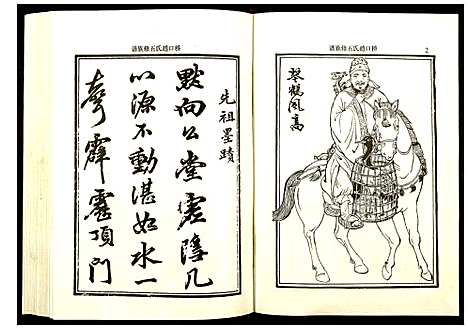 2
橋口趙氏五修族譜
琴鶴風高
橋口趙氏五修族譜
先祖墨蹟
默向公堂虛隱几
心源不動湛如水一
聲霹靂頂門